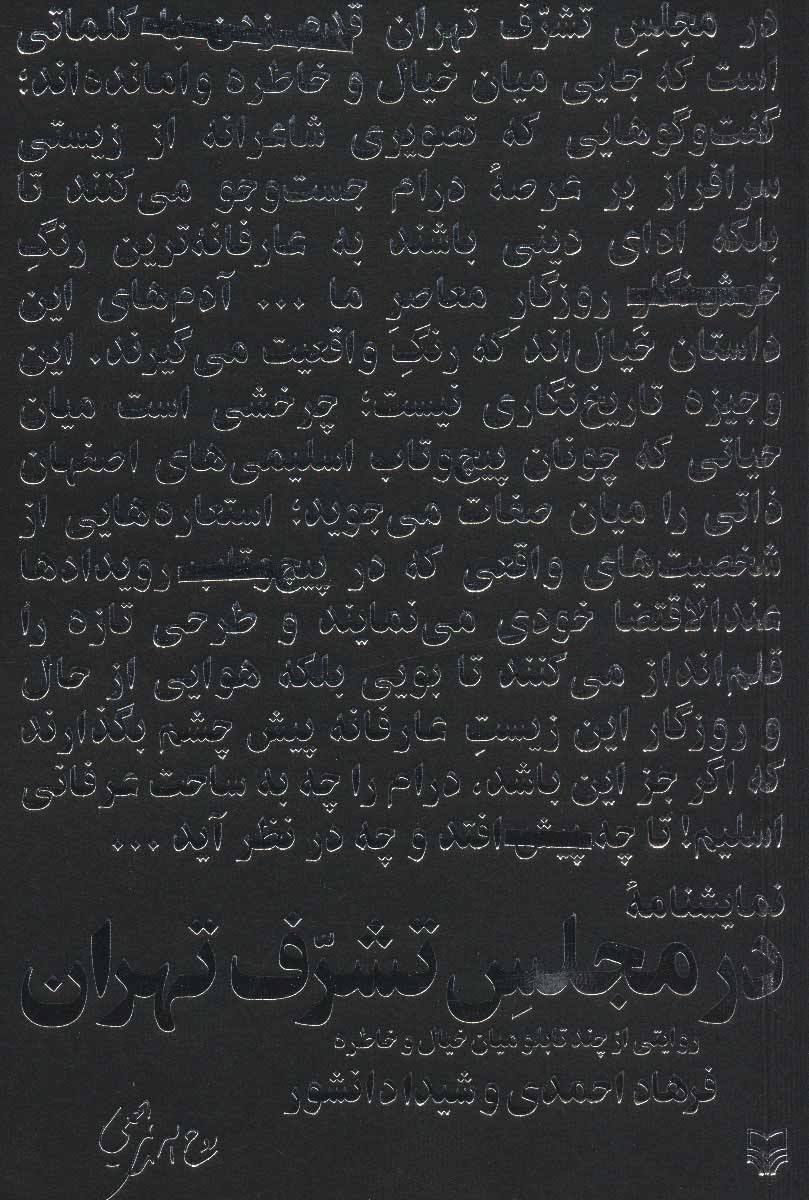 در مجلسِ تشرّف تهران قدم زدن به کلماتی
است که جایی میان خیال و خاطره وامانده‌اند؛
گفت‌وگوهایی که تصویری شاعرانه از زیستی
سرافراز بر عرصهٔ درام جست‌وجو می‌کنند تا
بلکه ادای دینی باشند به عارفانه‌ترین رنگِ
روزگارِ معاصرِ ما ... آدم‌های این
داستان خیال‌اند که رنگِ واقعیت می‌گیرند. این
وجیزه تاریخ‌نگاری نیست؛ چرخشی است میان
حیاتی که چونان پیچ‌وتاب اسلیمی‌های اصفهان
ذاتی را میان صفات می‌جوید؛ استعاره‌هایی از
شخصیت‌های واقعی که در پیچ‌وتاب رویدادها
عندالاقتضا خودی می‌نمایند و طرحی تازه را
قلم‌انداز می‌کنند تا بویی بلکه هوایی از حال
و روزگار این زیستِ عارفانه پیش چشم بگذارند
که اگر جز این باشد، درام را چه به ساحت عرفانی
اسلیم! تا چه پیش افتد و چه در نظر آید ...
نمایشنامهٔ
در مجلسِ تشرّف تهران
روایتی از چند تابلو میان خیال و خاطره
فرهاد احمدی و شیدا دانشور